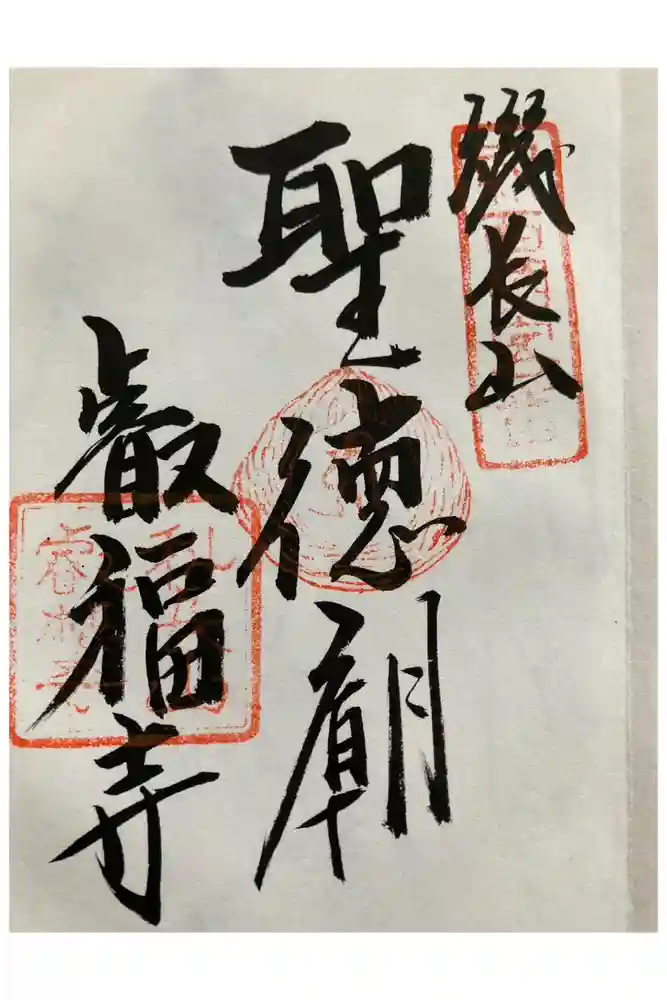 磯長山
聖徳廟
叡福寺